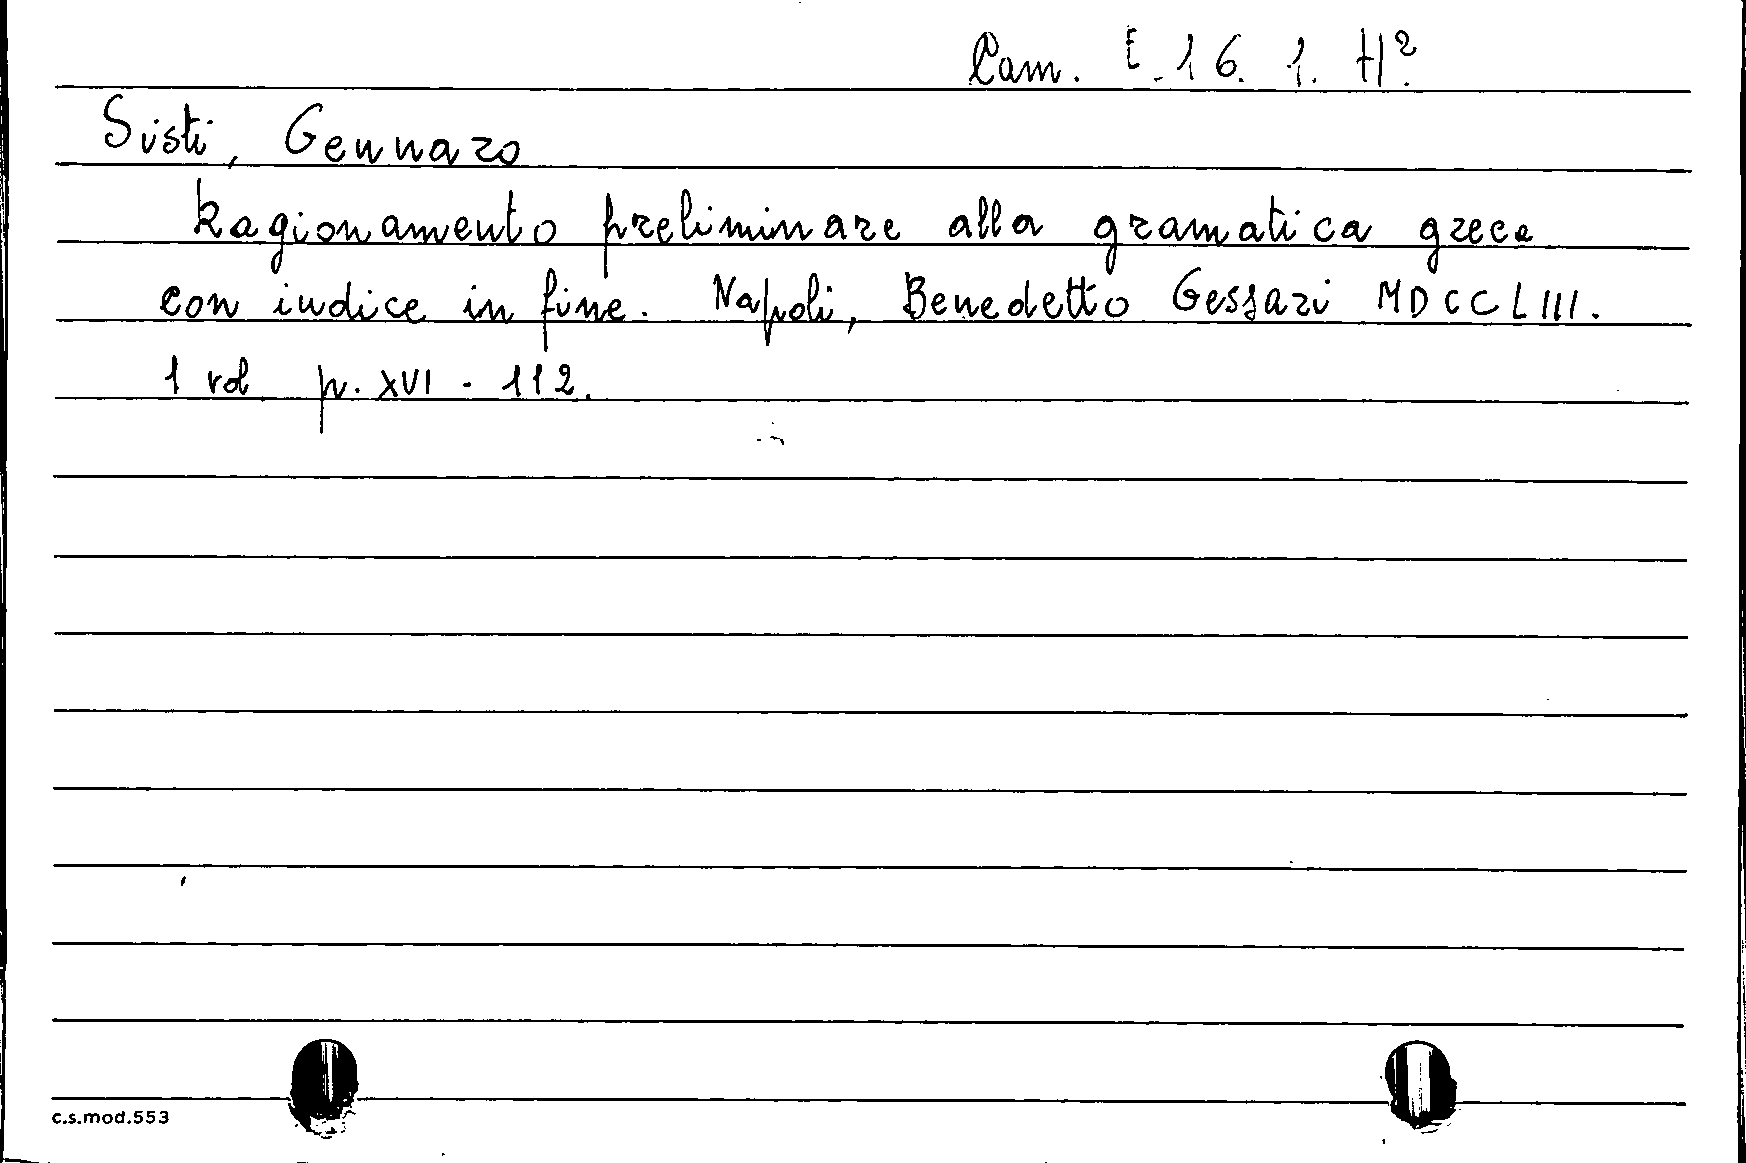 Cam. E.16.1.H².
Sisti, Gennaro
Ragionamento preliminare alla gramatica greca
con indice in fine. Napoli, Benedetto Gessari MDCCLIII.
1 vol p. XVI - 112.
c.s.mod.553